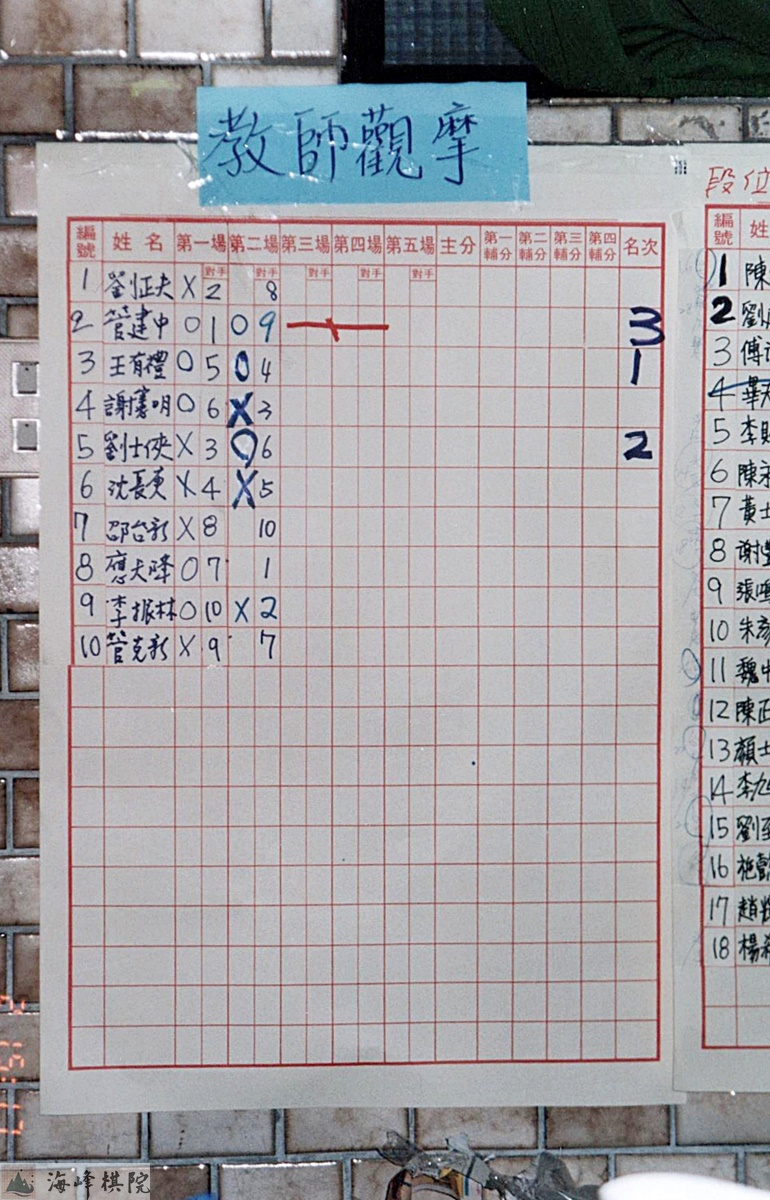 教師觀摩
編號 姓名 第一場 第二場 第三場 第四場 第五場 主分 第一輔分 第二輔分 第三輔分 第四輔分 名次
對手 對手 對手 對手 對手
1 劉 夫 X 2 8
2 管建中 O 1 O 9 3
3 王有禮 O 5 O 4 1
4 謝 明 O 6 X 3
5 劉士俠 X 3 O 6 2
6 沈長庚 X 4 X 5
7 邵台新 X 8 10
8 應大降 O 7 1
9 李振林 O 10 X 2
10 管克新 X 9 7
段位
編號 姓
1 陳
2 劉
3 傅
4 畢
5 李
6 陳
7 黃士
8 謝
9 張
10 朱彥
11 魏中
12 陳正
13 顏士
14 李
15 劉至
16 施
17 趙
18 楊
海峰棋院